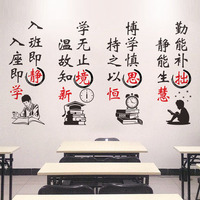 勤能补拙
静能生慧
博学慎思
持之以恒
学无止境
温故知新
入班即静
入座即学